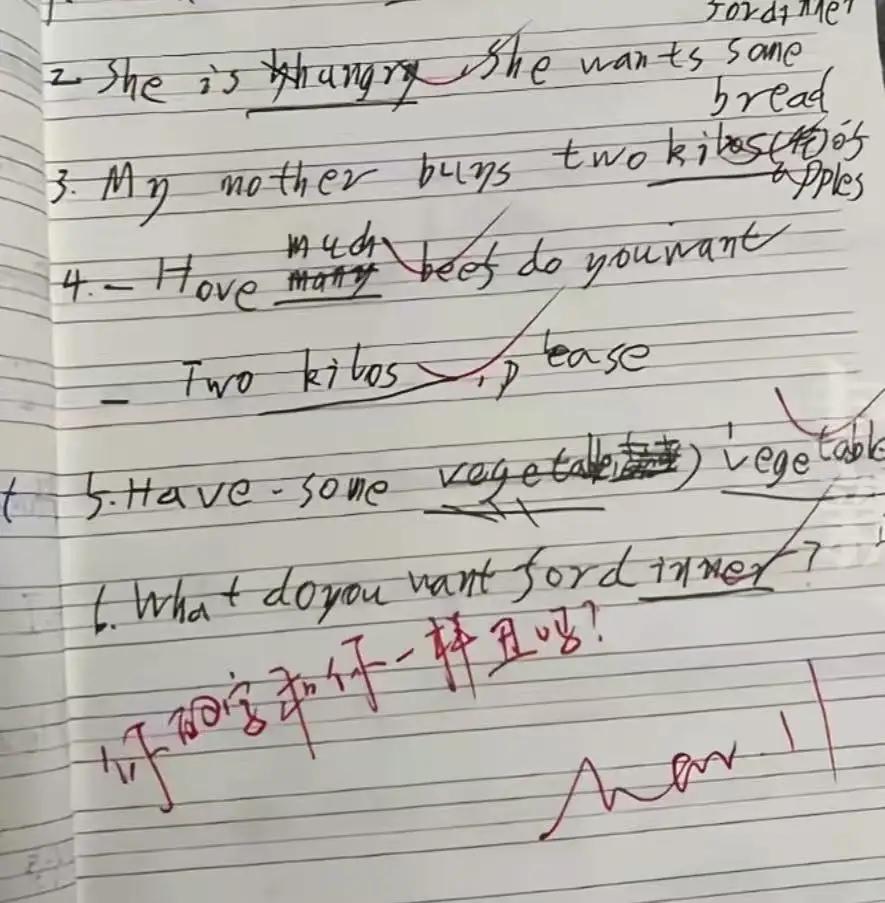 for di me?
2. She is hungry She wants some
bread
3. My mother buys two kilos(千克) of
apples
much
4. - Hove many beef do you want
- Two kilos, please
5. Have some vegetable) vegetable
6. What do you want for dinner?
你确定和你一样丑吗?
Mar. 11